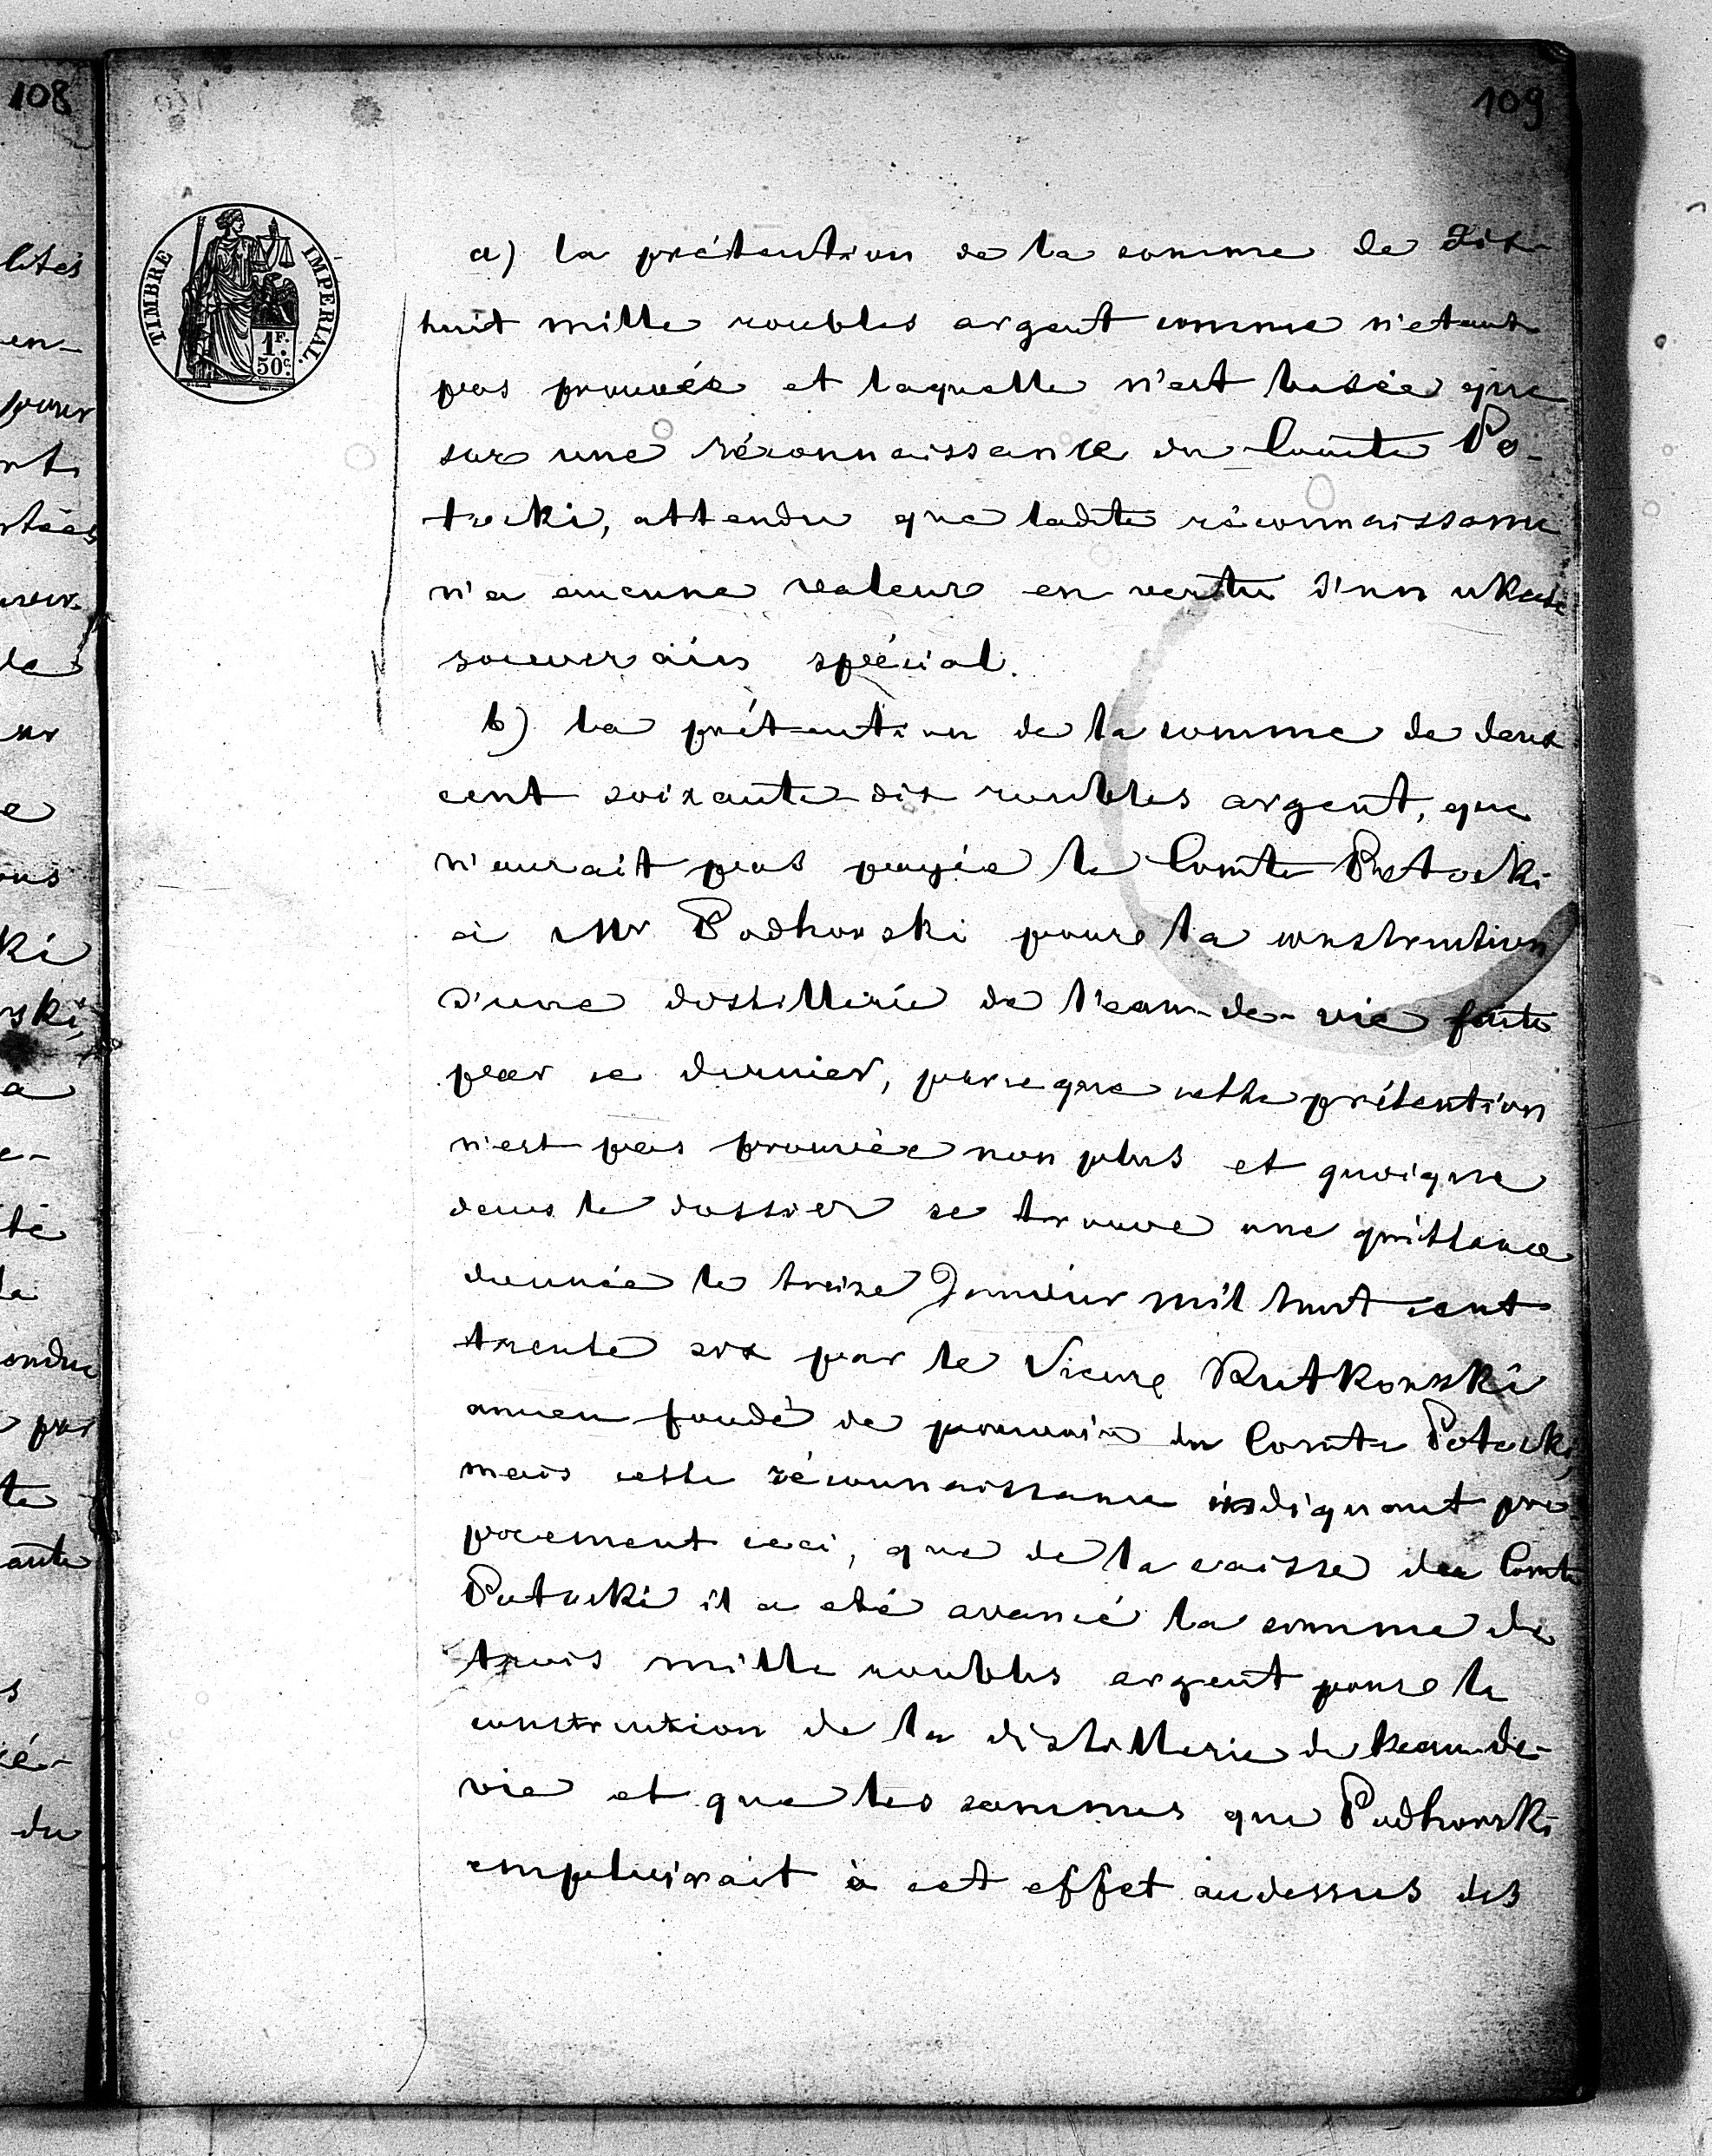 108
109
TIMBRE IMPERIAL.
1F.
50c.
a) la prétention de la somme de dix-
huit mille roubles argent comme n'etant
pas prouvée et laquelle n'est basée que
sur une réconnaissance du Comte Po-
tocki, attendu que ladite réconnaissance
n'a aucune valeur en vertu d'un ukase
souverain spécial.
b) la prétention de la somme de deux
cent soixante-dix roubles argent, que
n'aurait pas payée le Comte Potocki
à Mr Podhorski pour la construction
d'une distillerie de l'eau-de-vie faite
par ce dernier, parceque cette prétention
n'est pas prouvée non plus et quoique
dans le dossier se trouve une quittance
donnée le treize Janvier mil huit cent
trente six par le Sieur Rutkowski
ancien fondé de pouvoir du Comte Potocki,
mais cette réconnaissance indiquant pro
ceci, que de la caisse du Comte
Potocki il a été avancé la somme de
trois mille roubles argent pour la
construction de la distillerie de l'eau-de-
vie et que les sommes que Podhorski
emploirait à cet effet audessus des
lités
en-
pour
la
sur
e
ons
ki
rski,
a
e-
té
la
ondue
par
te
ante
s
ié-
du